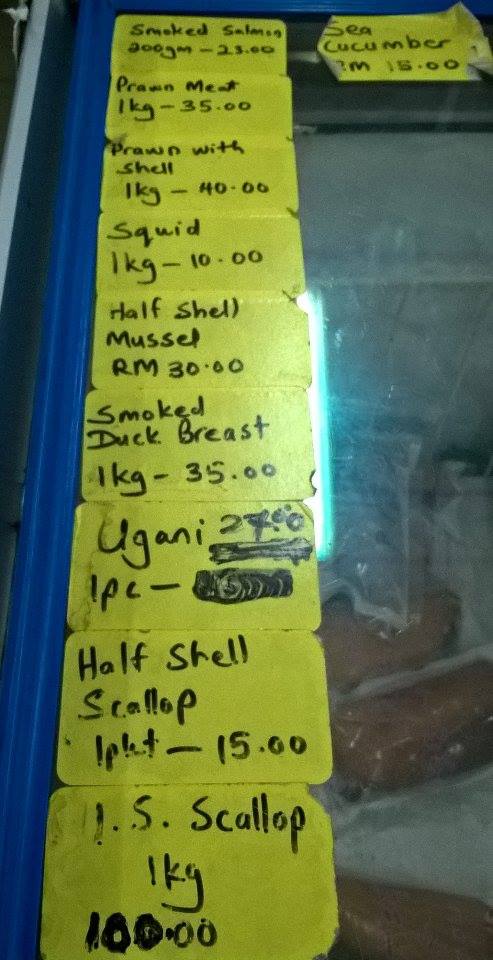 Smoked Salmon
200gm - 23.00
Sea
Cucumber
RM 15.00
Prawn Meat
1kg - 35.00
Prawn with
Shell
1kg - 40.00
Squid
1kg - 10.00
Half Shell
Mussel
RM 30.00
Smoked
Duck Breast
1kg - 35.00
Ugani 27.00
1pc -
Half Shell
Scallop
1pkt - 15.00
I.S. Scallop
1kg
100.00